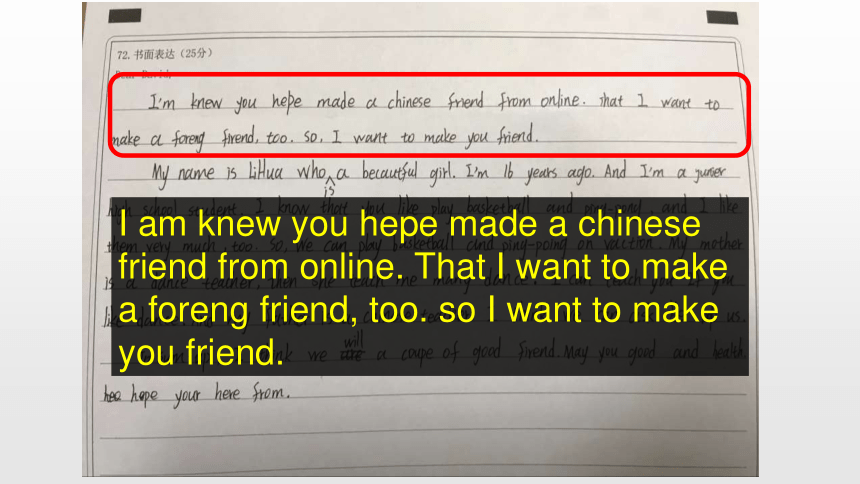 72. 书面表达（25分）
Dear David,
I'm knew you hepe made a chinese friend from online. that I want to
make a foreng firend, too. so, I want to make you friend.
My name is LiHua who a becautful girl. I'm 16 years ago. And I'm a junier
is
high school student. I know that you like play basketball and and I like
them very much, too. So, we can play basketball and ping-poing on vacition. My mother
is a dance teacher, then she teach me many dance. I can teach you if you
like dance. us.
will
we are a coupe of good firend. May you good and health.
hope your here from.
I am knew you hepe made a chinese
friend from online. That I want to make
a foreng friend, too. so I want to make
you friend.